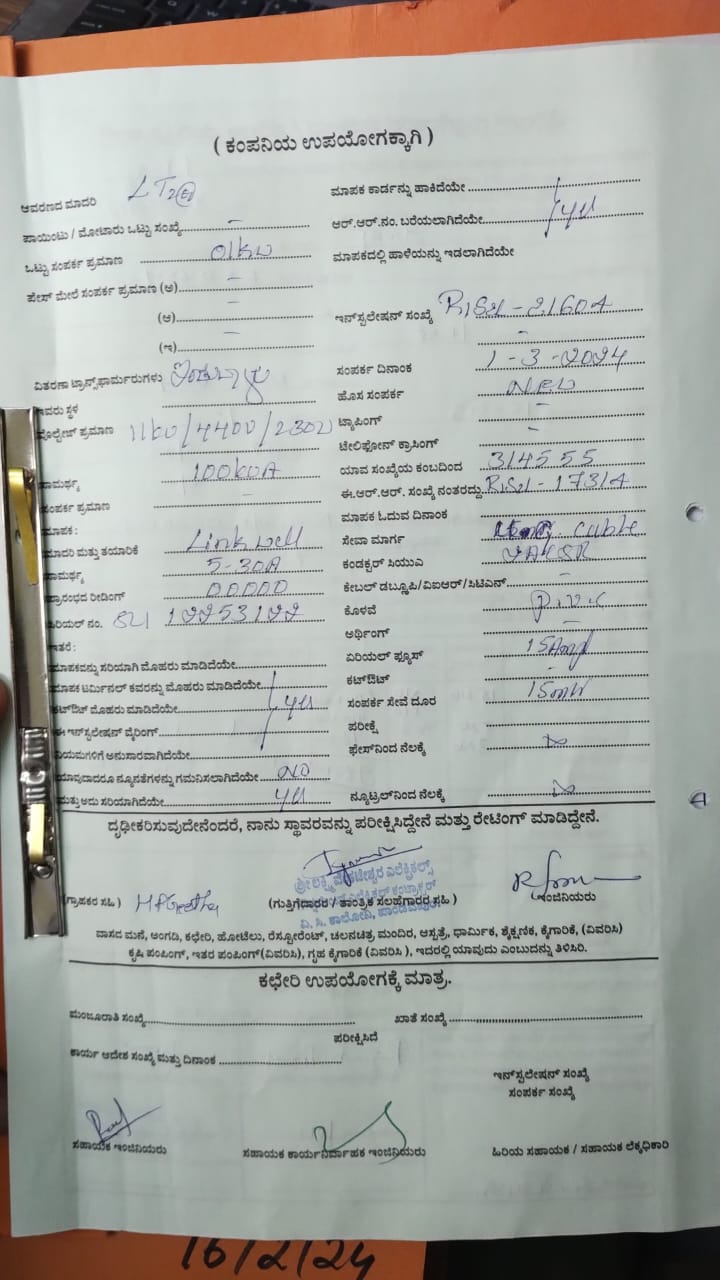 ( ಕಂಪನಿಯ ಉಪಯೋಗಕ್ಕಾಗಿ )
ಆವರಣದ ಮಾದರಿ
ಪಾಯಿಂಟು / ಮೋಟಾರು ಒಟ್ಟು ಸಂಖ್ಯೆ –
ಒಟ್ಟು ಸಂಪರ್ಕ ಪ್ರಮಾಣ 01KW
ಪೇಸ್ ಮೇಲೆ ಸಂಪರ್ಕ ಪ್ರಮಾಣ (ಅ) –
(ಆ) –
(ಇ) –
ವಿತರಣಾ ಟ್ರಾನ್ಸ್‌ಫಾರ್ಮರುಗಳು
ಇವರು ಸ್ಥಳ
ವೋಲ್ಟೇಜ್ ಪ್ರಮಾಣ 11KV/440V/230V
ಸಾಮರ್ಥ್ಯ 100KVA
ಸಂಪರ್ಕ ಪ್ರಮಾಣ –
ಮಾಪಕ :
ಮಾದರಿ ಮತ್ತು ತಯಾರಿಕೆ Linkwell
ಸಾಮರ್ಥ್ಯ 5-30A
ಪ್ರಾರಂಭದ ರೀಡಿಂಗ್ 00000
ಸಿರಿಯಲ್ ನಂ.
ಇತರೆ :
ಮಾಪಕವನ್ನು ಸರಿಯಾಗಿ ಮೊಹರು ಮಾಡಿದೆಯೇ
ಮಾಪಕ ಟರ್ಮಿನಲ್ ಕವರನ್ನು ಮೊಹರು ಮಾಡಿದೆಯೇ
ಕಟ್‌ಔಟ್ ಮೊಹರು ಮಾಡಿದೆಯೇ yes
ಈ ಇನ್‌ಸ್ಟಲೇಷನ್ ವೈರಿಂಗ್
ನಿಯಮಗಳಿಗೆ ಅನುಸಾರವಾಗಿದೆಯೇ
ಯಾವುದಾದರೂ ನ್ಯೂನತೆಗಳನ್ನು ಗಮನಿಸಲಾಗಿದೆಯೇ NO
ಮತ್ತು ಅದು ಸರಿಯಾಗಿದೆಯೇ yes
ಮಾಪಕ ಕಾರ್ಡನ್ನು ಹಾಕಿದೆಯೇ
ಆರ್.ಆರ್.ನಂ. ಬರೆಯಲಾಗಿದೆಯೇ yes
ಮಾಪಕದಲ್ಲಿ ಹಾಳೆಯನ್ನು ಇಡಲಾಗಿದೆಯೇ
ಇನ್‌ಸ್ಟಲೇಷನ್ ಸಂಖ್ಯೆ
ಸಂಪರ್ಕ ದಿನಾಂಕ 1-3-2024
ಹೊಸ ಸಂಪರ್ಕ NEW
ಟ್ಯಾಪಿಂಗ್ –
ಟೆಲಿಫೋನ್ ಕ್ರಾಸಿಂಗ್ –
ಯಾವ ಸಂಖ್ಯೆಯ ಕಂಬದಿಂದ 314555
ಈ.ಆರ್.ಆರ್. ಸಂಖ್ಯೆ ನಂತರದ್ದು
ಮಾಪಕ ಓದುವ ದಿನಾಂಕ
ಸೇವಾ ಮಾರ್ಗ cable
ಕಂಡಕ್ಟರ್ ಸಿಯುಎ
ಕೇಬಲ್ ಡಬ್ಲೂಪಿ/ವಿಐಆರ್/ಸಿಟಿಎಸ್ –
ಕೊಳವೆ P.V.C
ಅರ್ಥಿಂಗ್ –
ಏರಿಯಲ್ ಫ್ಯೂಸ್ 15Amp
ಕಟ್‌ಔಟ್ –
ಸಂಪರ್ಕ ಸೇವೆ ದೂರ
ಪರೀಕ್ಷೆ
ಫೇಸ್‌ನಿಂದ ನೆಲಕ್ಕೆ
ನ್ಯೂಟ್ರಲ್‌ನಿಂದ ನೆಲಕ್ಕೆ
ದೃಢೀಕರಿಸುವುದೇನೆಂದರೆ, ನಾನು ಸ್ಥಾವರವನ್ನು ಪರೀಕ್ಷಿಸಿದ್ದೇನೆ ಮತ್ತು ರೇಟಿಂಗ್ ಮಾಡಿದ್ದೇನೆ.
(ಗ್ರಾಹಕರ ಸಹಿ )
(ಗುತ್ತಿಗೆದಾರರ / ತಾಂತ್ರಿಕ ಸಲಹೆಗಾರರ ಸಹಿ )
ಇಂಜಿನಿಯರು
ವಾಸದ ಮನೆ, ಅಂಗಡಿ, ಕಛೇರಿ, ಹೋಟೆಲು, ರೆಸ್ಟೋರೆಂಟ್, ಚಲನಚಿತ್ರ ಮಂದಿರ, ಆಸ್ಪತ್ರೆ, ಧಾರ್ಮಿಕ, ಶೈಕ್ಷಣಿಕ, ಕೈಗಾರಿಕೆ, (ವಿವರಿಸಿ)
ಕೃಷಿ ಪಂಪಿಂಗ್, ಇತರ ಪಂಪಿಂಗ್(ವಿವರಿಸಿ), ಗೃಹ ಕೈಗಾರಿಕೆ (ವಿವರಿಸಿ ), ಇದರಲ್ಲಿ ಯಾವುದು ಎಂಬುದನ್ನು ತಿಳಿಸಿರಿ.
ಕಛೇರಿ ಉಪಯೋಗಕ್ಕೆ ಮಾತ್ರ.
ಮಂಜೂರಾತಿ ಸಂಖ್ಯೆ ಖಾತೆ ಸಂಖ್ಯೆ
ಪರೀಕ್ಷಿಸಿದೆ
ಕಾರ್ಯ ಆದೇಶ ಸಂಖ್ಯೆ ಮತ್ತು ದಿನಾಂಕ
ಇನ್‌ಸ್ಟಲೇಷನ್ ಸಂಖ್ಯೆ
ಸಂಪರ್ಕ ಸಂಖ್ಯೆ
ಸಹಾಯಕ ಇಂಜಿನಿಯರು ಸಹಾಯಕ ಕಾರ್ಯನಿರ್ವಾಹಕ ಇಂಜಿನಿಯರು ಹಿರಿಯ ಸಹಾಯಕ / ಸಹಾಯಕ ಲೆಕ್ಕಧಿಕಾರಿ
16/2/24